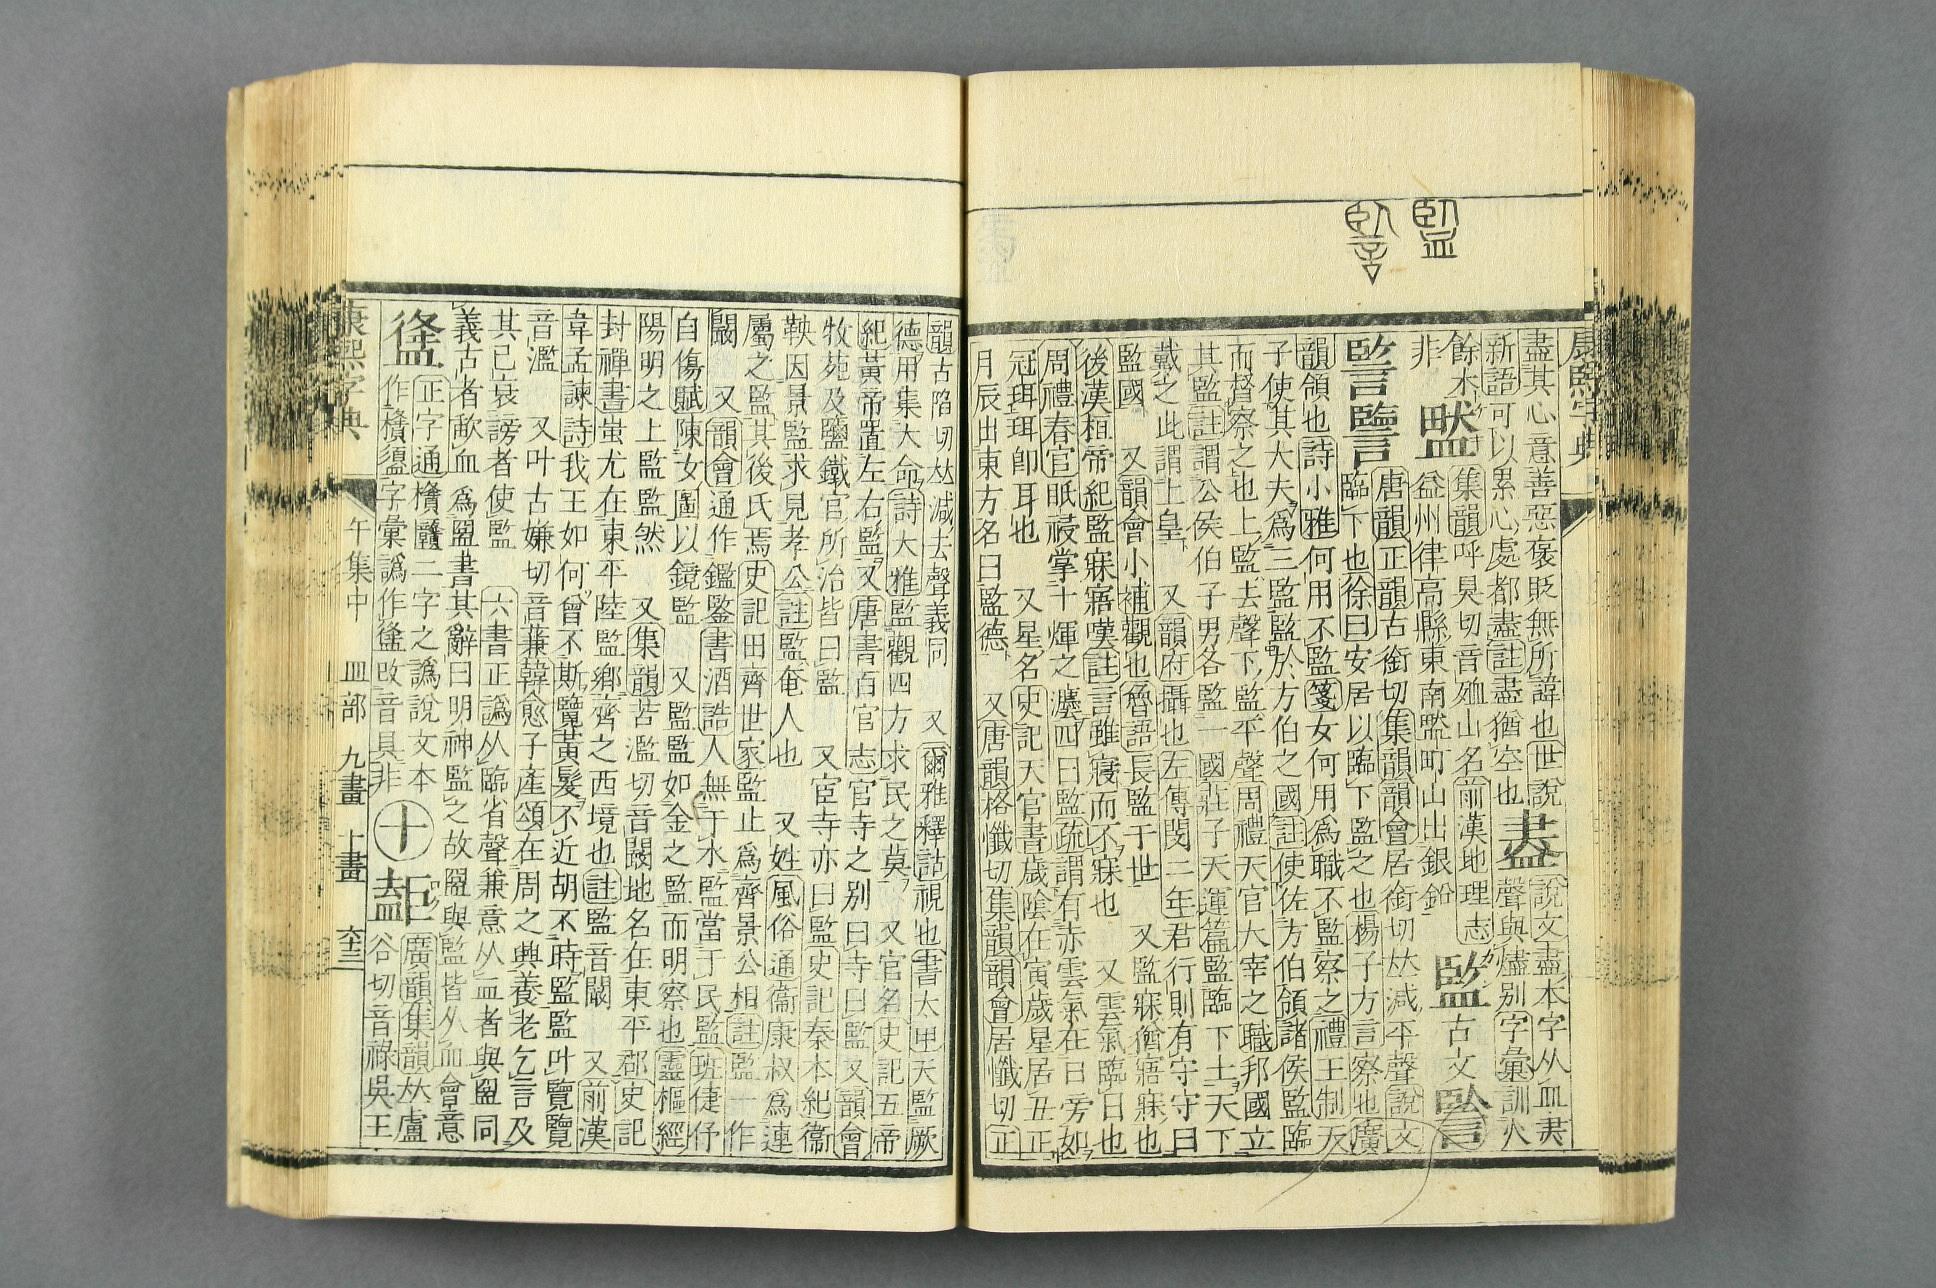 康熙字典
盡其心意善惡褒貶無所諱也世說
新語可以累心處都盡註盡猶空也
說文盡本字从皿
聲與燼別字彙訓火
餘木
非
集韻呼昊切音殈山名前漢地理志
益州律高縣東南町山出銀鉛
監
古文
唐韻正韻古銜切集韻韻會居銜切𠀤減平聲說文
臨下也徐曰安居以臨下監之也楊子方言察也廣
韻領也詩小雅何用不監箋女何用爲職不監察之禮王制天
子使其大夫爲三監監於方伯之國註使佐方伯領諸侯監臨
而督察之也上監去聲下監平聲周禮天官大宰之職邦國立
其監註謂公侯伯子男各監一國莊子天運篇監臨下土天下
戴之此謂上皇 又韻府攝也左傳閔二年君行則有守守曰
監國 又韻會小補觀也齊語長監于世 又監寐猶寤寐也
後漢桓帝紀監寐寤嘆註言雖寢而不寐也 又雲氣臨日也
周禮春官眡祲掌十煇之灋四曰監疏謂有赤雲氣在日旁如
冠珥珥卽耳也 又星名史記天官書歲陰在寅歲星居丑正
月辰出東方名曰監德 又唐韻格懺切集韻韻會居懺切正
韻古陷切𠀤減去聲義同 又爾雅釋詁視也書太甲天監厥
德用集大命詩大雅監觀四方求民之莫 又官名史記五帝
紀黃帝置左右監又唐書百官志官寺之别曰寺曰監又韻會
牧苑及鹽鐵官所治皆曰監 又宦寺亦曰監史記秦本紀衞
鞅因景監求見孝公註監奄人也 又姓風俗通衞康叔爲連
屬之監其後氏焉史記田齊世家監止爲齊景公相註監一作
闞 又韻會通作鑑鑒書酒誥人無于水監當于民監班倢伃
自傷賦陳女圖以鏡監 又監監如金之監而明察也靈樞經
陽明之上監監然 又集韻苦濫切音闞地名在東平郡史記
封禪書蚩尤在東平陸監鄉齊之西境也註監音闞 又前漢
韋孟諫詩我王如何曾不斯覽黃髮不近胡不時監監叶覽覽
音濫 又叶古嫌切音兼韓愈子產頌在周之興養老乞言及
其已衰謗者使監 六書正譌从臨省聲兼意从血者與盟同
義古者歃血爲盟書其辭曰明神監之故盟與監皆从血會意
正字通𣫍二字之譌說文本
作須字彙譌作攺音具非
十
廣韻集韻𠀤盧
谷切音祿吳王
康熙字典
午集中 皿部 九畫 十畫